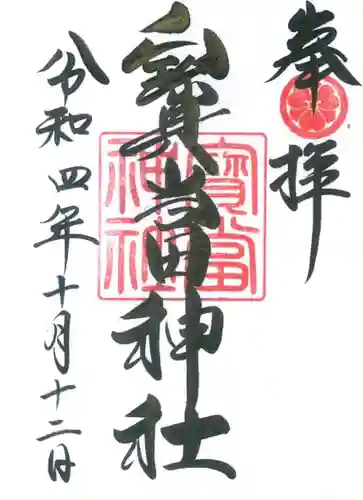 奉拝
寳當神社
寳當
神社
令和四年十月十二日